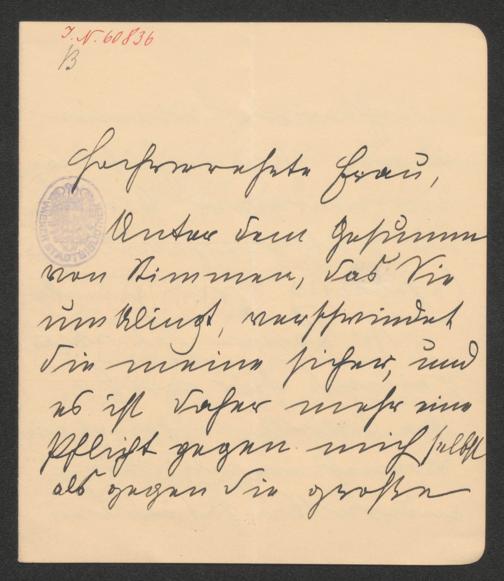 I. N. 60836
B
Hochverehrte Frau,
Unter dem Gesumme
von Stimmen, das Sie
umklingt, verschwindet
die meine sicher, und
es ist daher mehr eine
Pflicht gegen mich selbst
als gegen die große